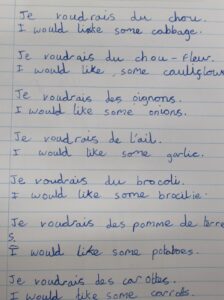 Je voudrais du chou.
I would like some cabbage.
Je voudrais du chou-fleur.
I would like, some cauliglows
Je voudrais des oignons.
I would like some onions.
Je voudrais de l'ail.
I would like some garlic.
Je voudrais du brocoli.
I would like some
Je voudrais des pomme de terre
s.
I would like some potatoes.
Je voudrais des carottes.
I would like some carrots.